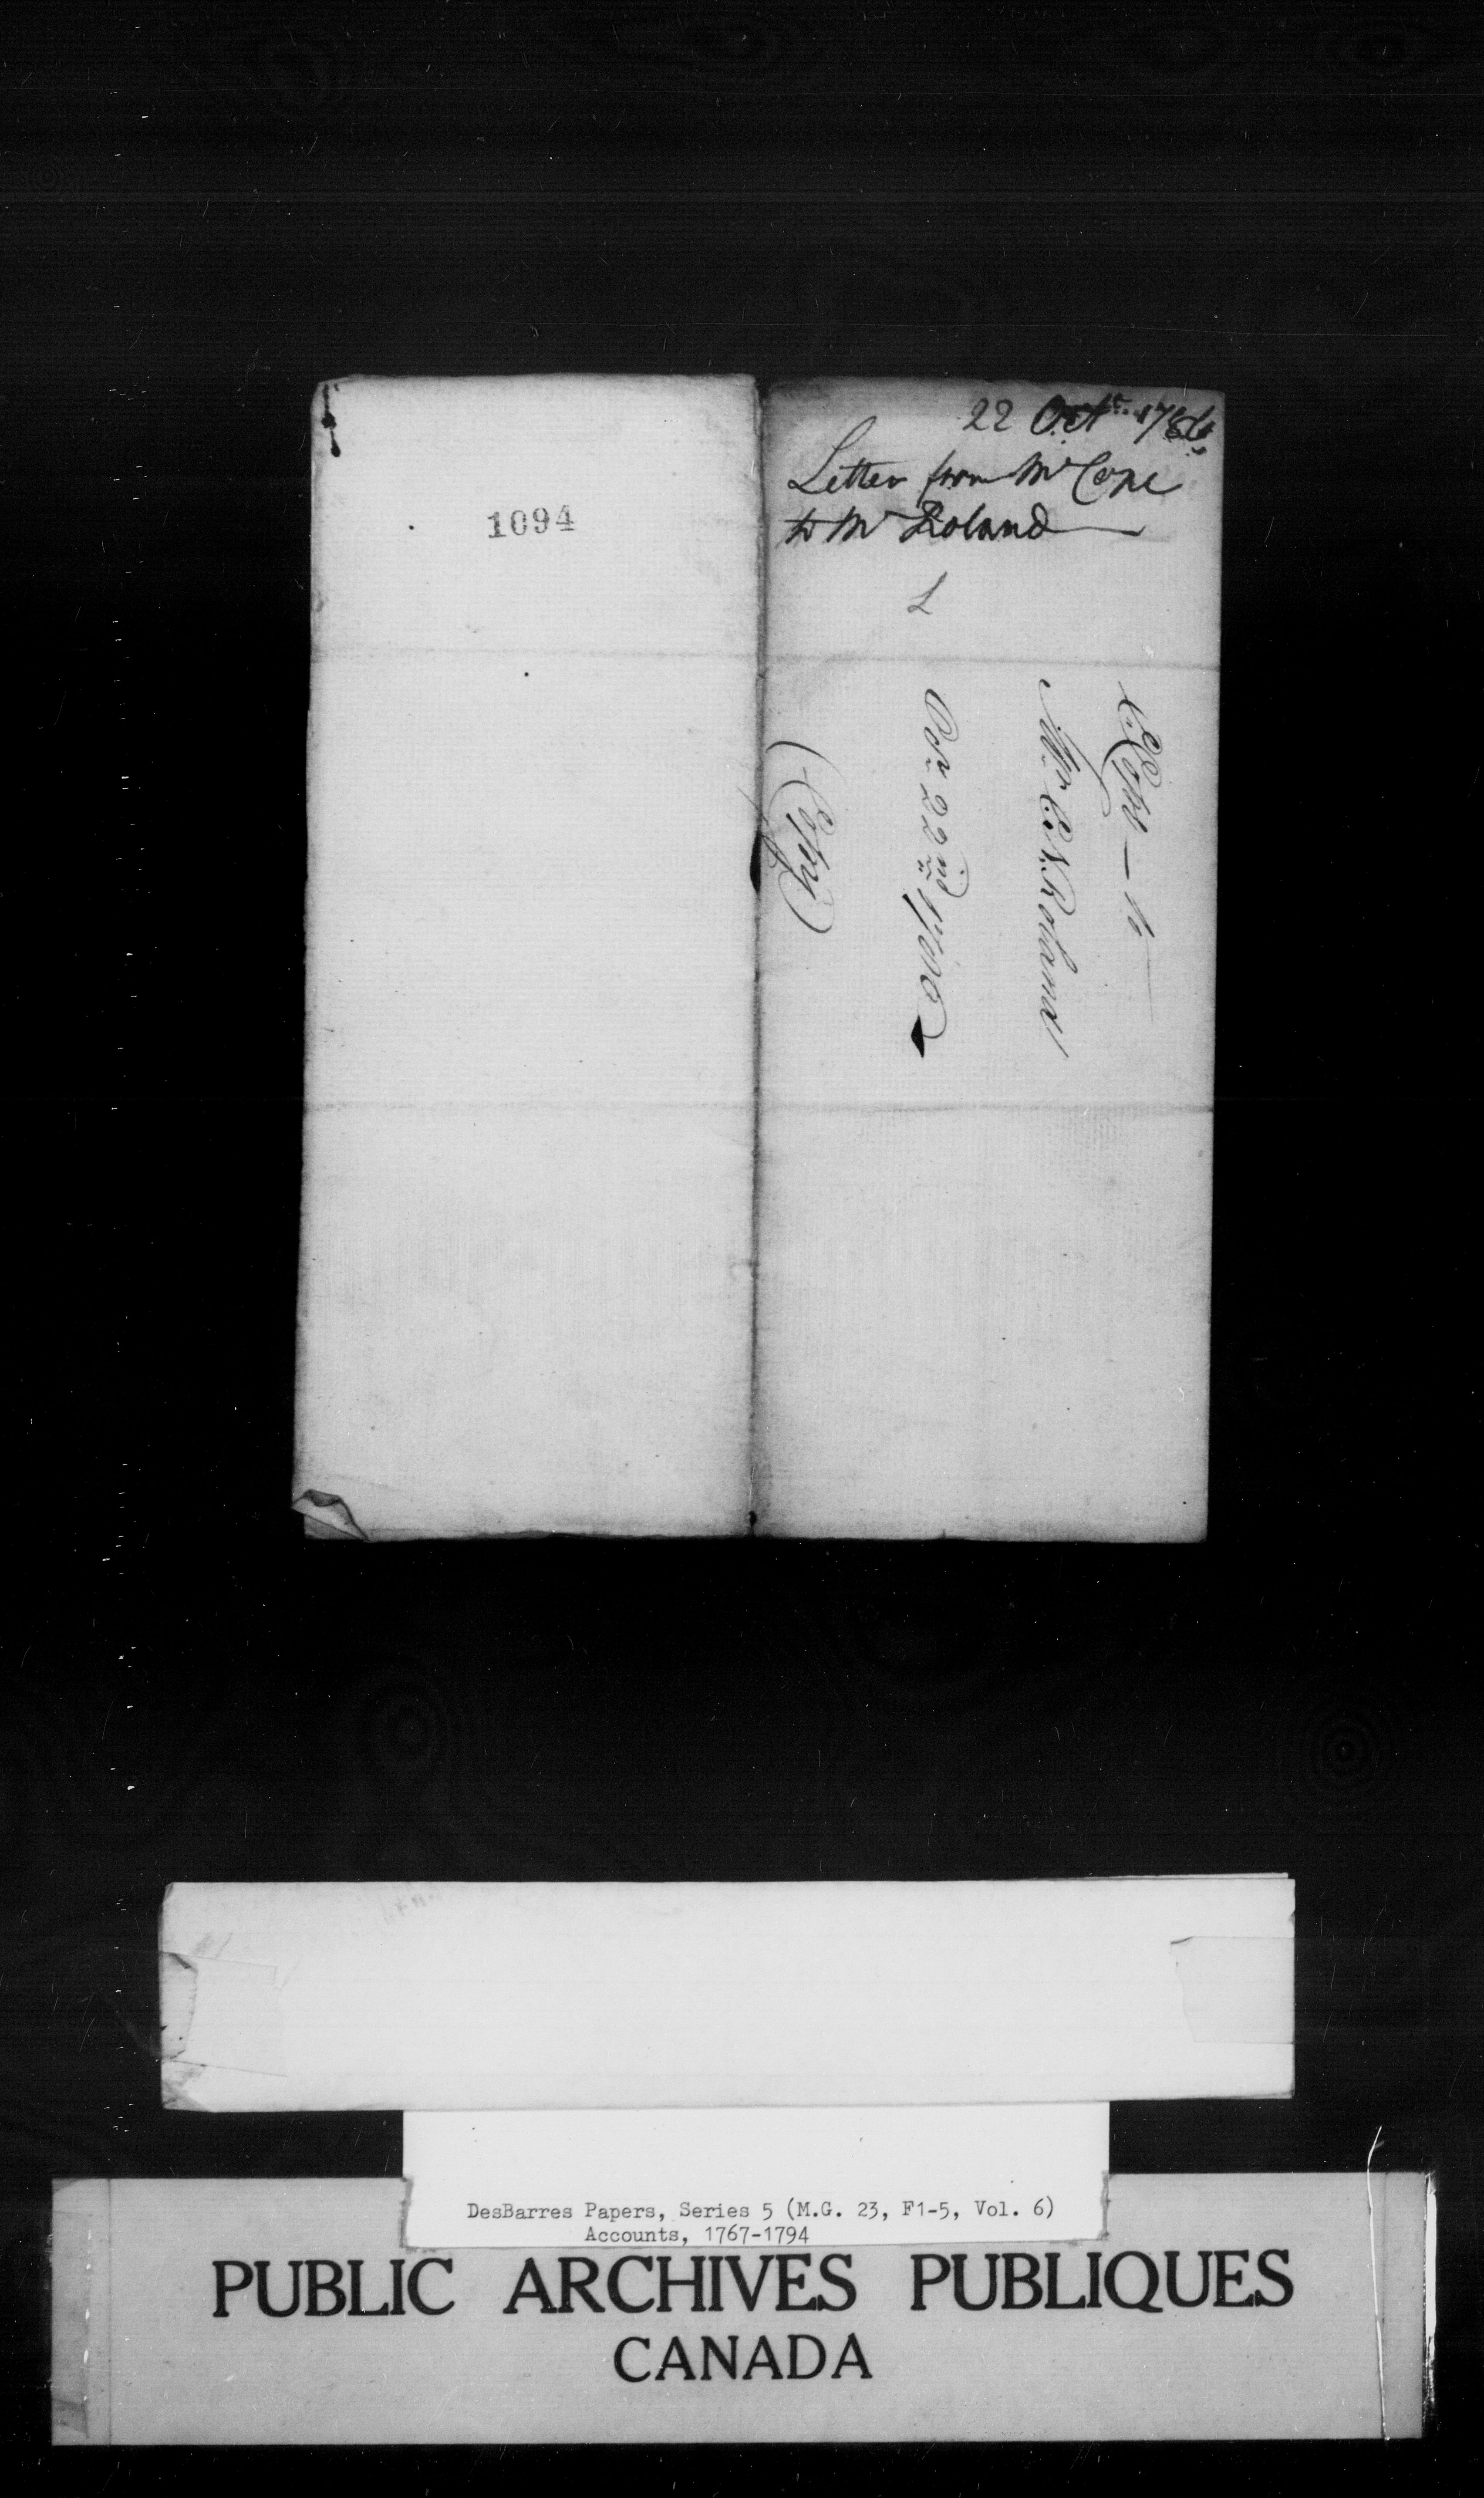 1094
22 Octr. 1786
Letter from Mr Cope
to Mr Roland
L
Mr C: N: Roland
Octr 22nd 1786
(Copy)
DesBarres Papers, Series 5 (M.G. 23, F1-5, Vol. 6)
Accounts, 1767-1794
PUBLIC ARCHIVES PUBLIQUES
CANADA